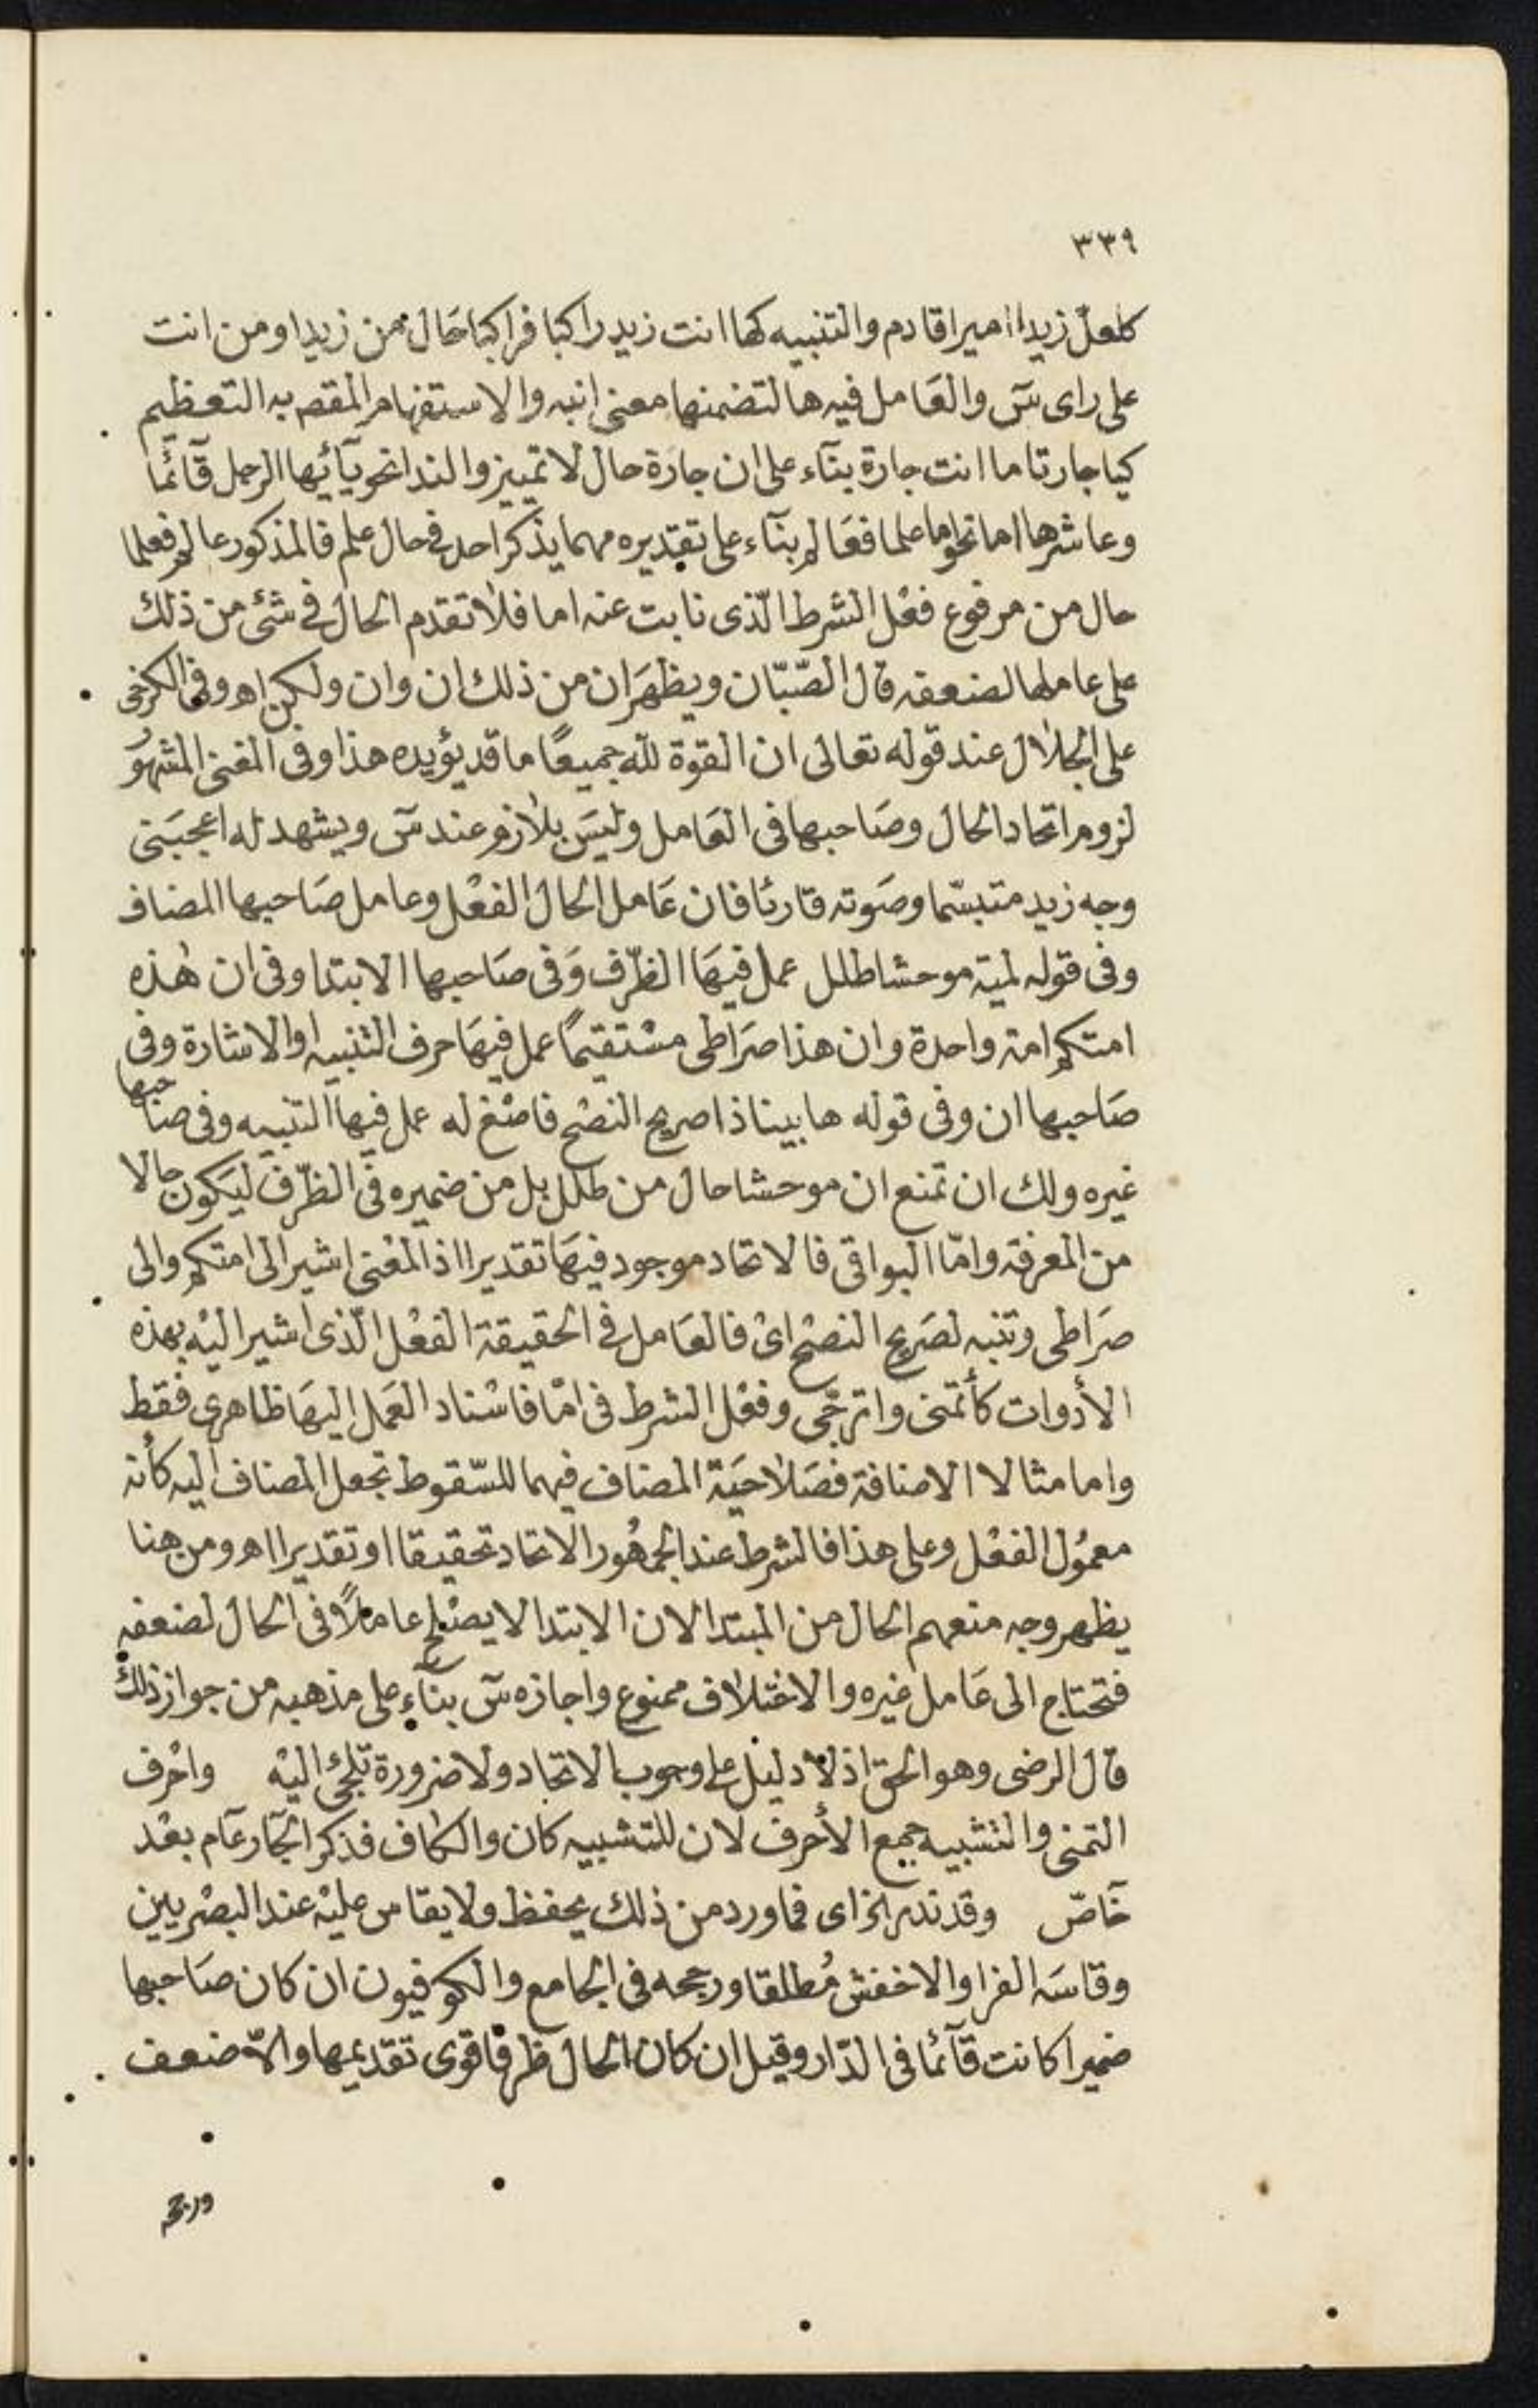 ٣٣٩
كلعل زيدا اميرا قادم والتنبيه كها انت زيد راكبا فراكبا حال من زيد او من انت
على راى س والعامل فيه ها لتضمنها معنى انبه والاستفهام المقصـ به التعظيم
كيا جارتا ما انت جارة بنآء على ان جارة حال لا تمييز والندا نحو يآ ئيها الرجل قآئما
وعاشرها اما نحو اما علما فعالم بنآء على تقديره مهما يذكر احد فى حال علم فالمذكور عالم فعلما
حال من مرفوع فعل الشرط الّذى نابت عنه اما فلا تقدم الحال فى شئ من ذلك
على عاملها لضعفه قال الصّبّان ويظهر ان من ذلك ان وان ولكن اهـ وفى الكرخى
على الجلال عند قوله تعالى ان القوة لله جميعًا ما قد يؤيده هذا وفى المغنى المشهور
لزوم اتحاد الحال وصاحبها فى العامل وليس بلازم عند س ويشهد له اعجبنى
وجه زيد متبسّما وصوته قارئا فان عامل الحال الفعل وعامل صاحبها المضاف
وفى قوله لمية موحشا طلل عمل فيها الظرف وفى صاحبها الابتدا وفى ان هذه
امتكم امة واحدة وان هذا صراطى مستقيمًا عمل فيها حرف التنبيه او الاشارة وفى
صاحبها ان وفى قوله ها بينا ذا صريح النصح فاصغ له عمل فيها التنبيه وفى صاحبها
غيره ولك ان تمنع ان موحشا حال من طلل بل من ضميره فى الظرف ليكون حالا
من المعرفة وامّا البواقى فالاتحاد موجود فيها تقديرا اذ المعنى اشير الى امتكم والى
صراطى وتنبه لصريح النصح اى فالعامل فى الحقيقة الفعل الّذى اشير اليه بهذه
الأدوات كأتمنى واترجّى وفعل الشرط فى امّا فاسناد العمل اليها ظاهرى فقط
واما مثالا الاضافة فصلاحية المضاف فيهما للسّقوط تجعل المضاف اليه كأنه
معمول الفعل وعلى هذا فالشرط عند الجمهور الاتحاد تحقيقا او تقديرا اهـ ومن هنا
يظهر وجه منعهم الحال من المبتدا لان الابتدا لا يصلح عاملاً فى الحال لضعفه
فتحتاج الى عامل غيره والاختلاف ممنوع واجازه س بنآء على مذهبه من جواز ذلك
قال الرضى وهو الحق اذ لا دليل على وجوب الاتحاد ولا ضرورة تلجئ اليه واحرف
التمنى والتشبيه جمع الأحرف لان للتشبيه كان والكاف فذكر الجار عآم بعد
خآصّ وقد ندر الخ اى فما ورد من ذلك يحفظ ولا يقاس عليه عند البصريين
وقاسه الفرا والاخفش مُطلقا ورجحه فى الجامع والكوفيون ان كان صاحبها
ضميرا كانت قآئما فى الدّار وقيل ان كان الحال ظرفا قوى تقديمها والاّ ضعف
ورجح